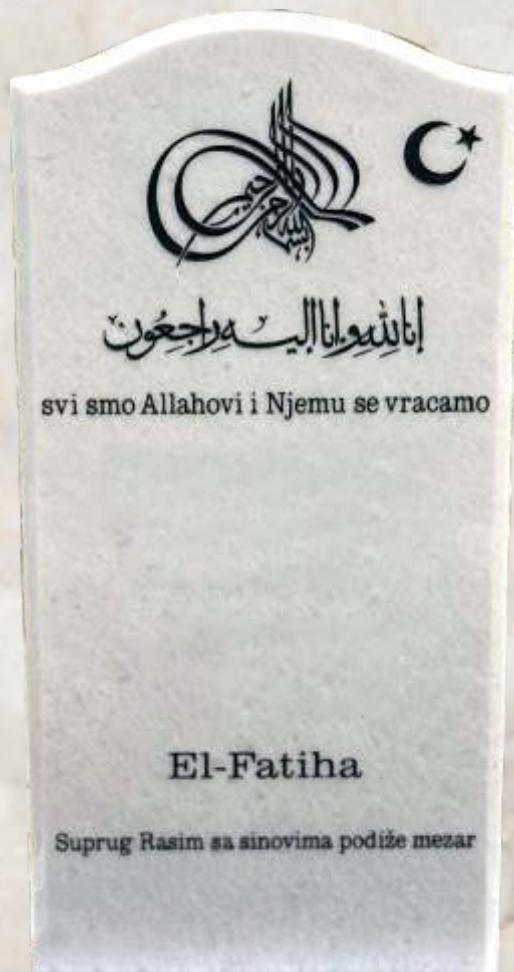 بسم الله الرحمن الرحيم
إنا لله وإنا إليه راجعون
svi smo Allahovi i Njemu se vracamo
El-Fatiha
Suprug Rasim sa sinovima podiže mezar